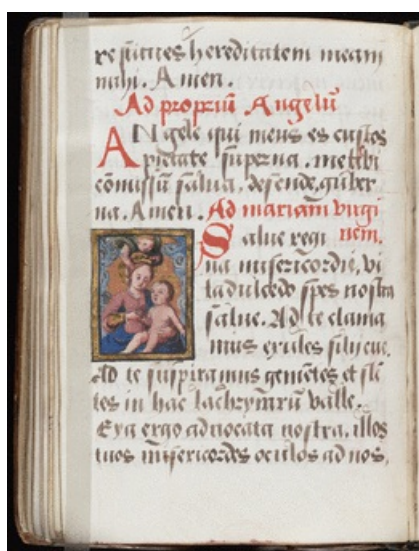 restitues hereditatem meam
mihi. Amen.
Ad propriũ Angelũ
ANgele qui meus es custos
pietate superna. me tibi
cõmissũ salua, defende, guber
na. Amen. Ad mariam virgi
Salue regi nem.
na misericordie, vi
ta dulcedo spes nostra
salue. Ad te clama
mus exules filij eue.
Ad te suspiramus gemẽtes et flẽ
tes in hac lachrymarũ valle.
Eya ergo aduocata nostra, illos
tuos misericordes oculos ad nos,